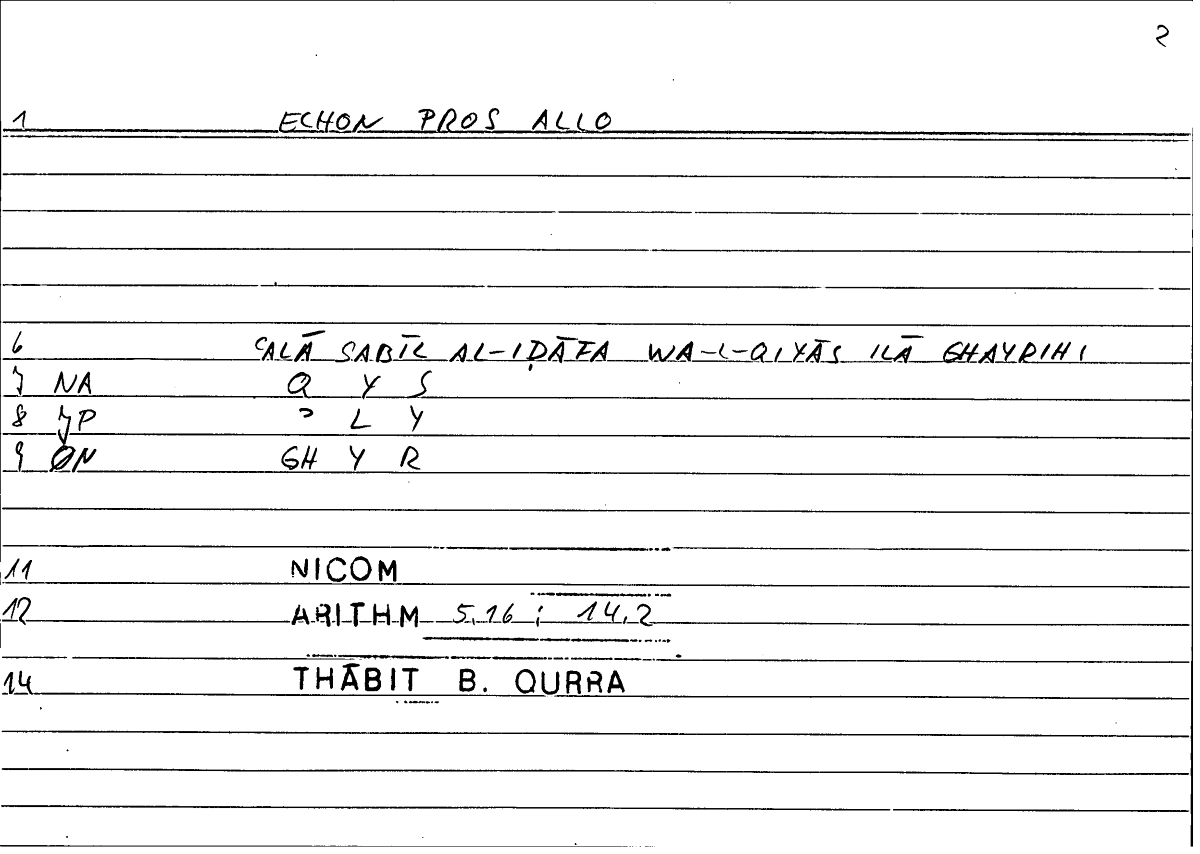 2
1 ECHON PROS ALLO
6 ʿALĀ SABĪL AL-IḌĀFA WA-L-QIYĀS ILĀ GHAYRIHI
7 NA Q Y S
8 JP ʾ L Y
9 ON GH Y R
11 NICOM
12 ARITHM 5,16 ; 14,2
14 THĀBIT B. QURRA